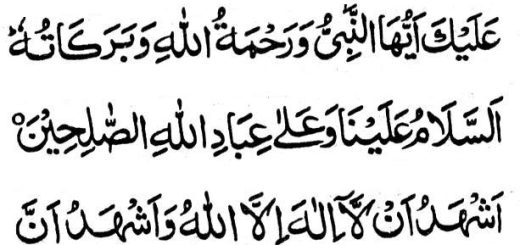 عَلَيْكَ اَيُّهَا النَّبِىُّ وَرَحْمَةُ اللهِ وَبَرَكَاتُهٗ ؕ
اَلسَّلَامُ عَلَيْنَا وَعَلٰى عِبَادِ اللهِ الصّٰلِحِيْنَ ۝
اَشْهَدُ اَنْ لَّآ اِلٰهَ اِلَّا اللهُ وَاَشْهَدُ اَنَّ